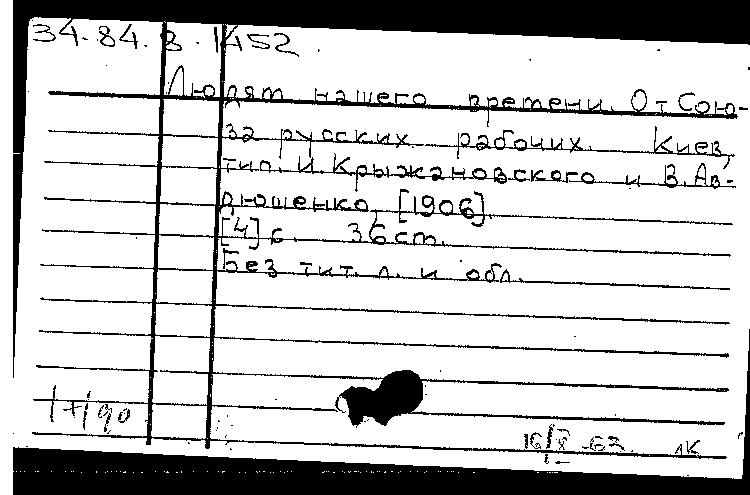 34.84.8.1452.
Людям нашего времени. От Сою-
за русских рабочих. Киев,
тип. И. Крыжановского и В. Ав-
дюшенко, [1906].
[4] с. 36 cm.
Без тит. л. и обл.
1+/90
16/X-62. лк